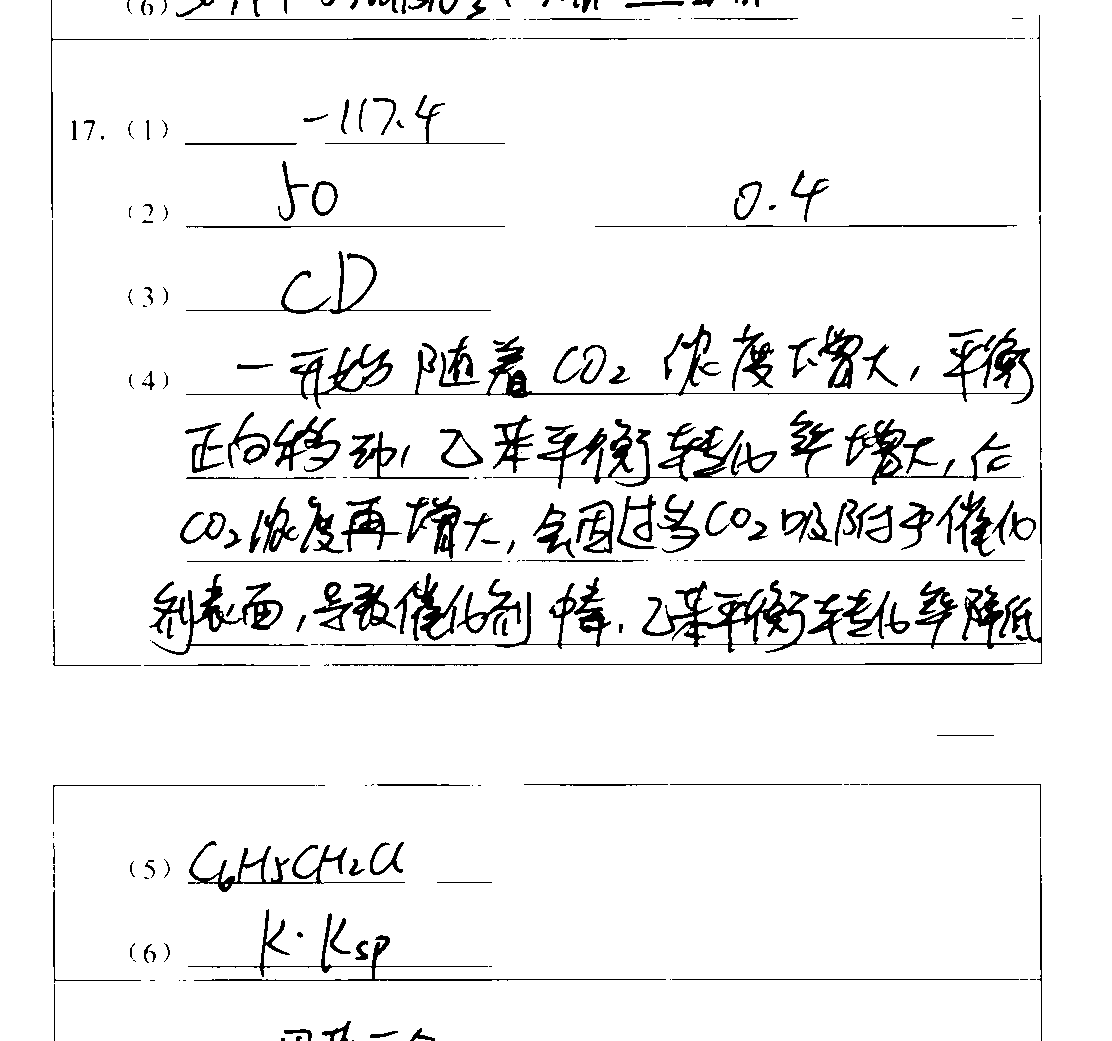 (6)
17. (1) -117.4
(2) 50 0.4
(3) CD
(4) 一开始随着CO₂浓度增大，平衡
正向移动，乙苯平衡转化率增大，
CO₂浓度再增大，会因过多CO₂吸附于催化
剂表面，导致催化剂中毒，乙苯平衡转化率降低
(5) C₆H₅CH₂Cl
(6) K·Ksp